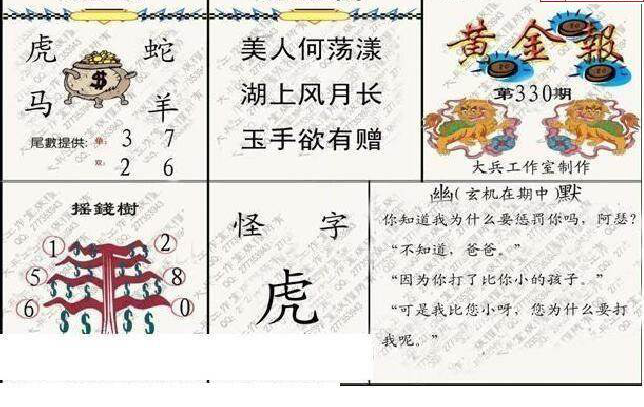 虎 蛇
马 羊
尾數提供: 单: 3 7
双: 2 6
美人何荡漾
湖上风月长
玉手欲有赠
黄金報
第330期
大兵工作室制作
摇錢樹
1 2
5 8
6 0
怪 字
虎
幽(玄机在期中)默
你知道我为什么要惩罚你吗，阿瑟?
“不知道，爸爸。”
“因为你打了比你小的孩子。”
“可是我比您小呀，您为什么要打
我呢。”